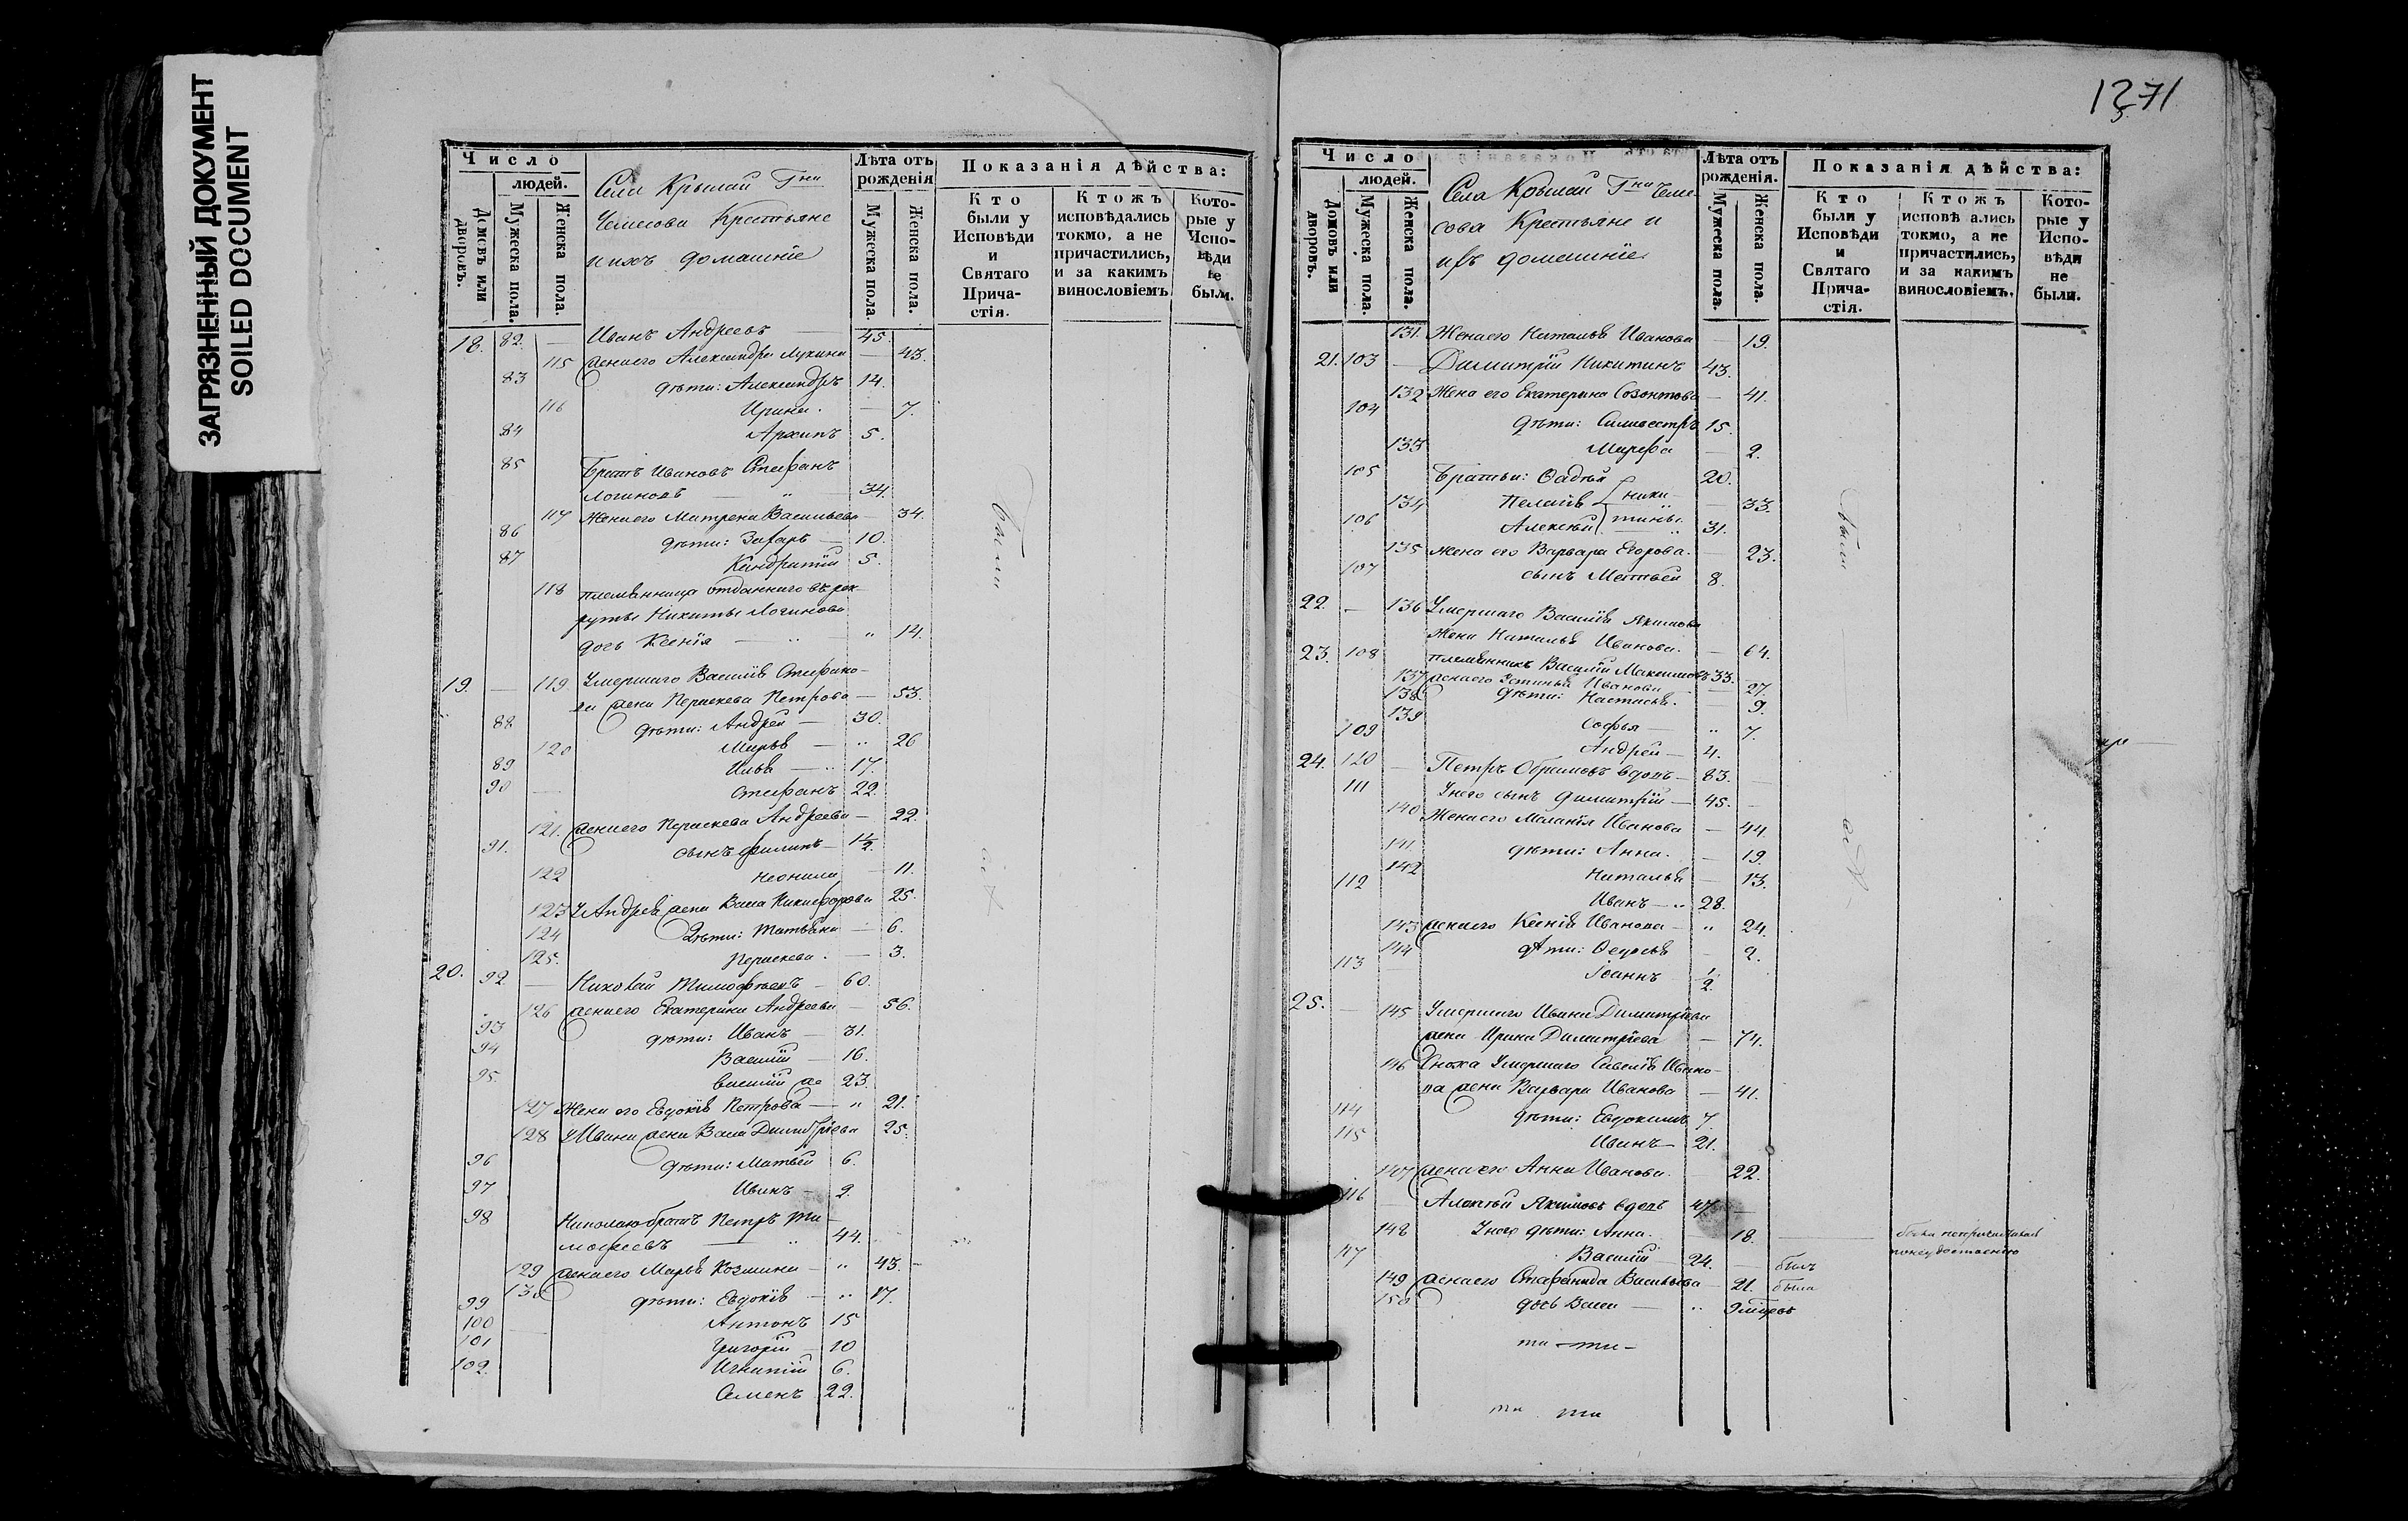 ЗАГРЯЗНЕННЫЙ ДОКУМЕНТ
SOILED DOCUMENT
Число
людей.
Домовъ или дворовъ.
Мужеска пола.
Женска пола.
Села Крышаи Гни
Чемесова Крестьяне
и ихъ домашніе
Лѣта отъ рожденія
Мужеска пола.
Женска пола.
Показанія дѣйства:
Кто были у Исповѣди и Святаго Причастія.
Ктожъ исповѣдались токмо, а не причастились, и за какимъ винословіемъ
Которые у Исповѣди не были.
18. 82. — Иванъ Андреевъ 45.
115 жена его Александра Лукина — 43.
83 дѣти: Александръ 14.
116 Ирина. — 7.
84 Архипъ 5.
85 Братъ Ивановъ Стефанъ
Логиновъ — „ — 34.
117 Жена его Матрена Васильева — 34.
86 дѣти: Захаръ — 10.
87 Кондратій 5.
118 племянница отданнаго въ рек-
руты Никиты Логинова
дочь Ксенія — „ „ 14.
19. — 119 Умершаго Василія Стефано-
ва жена Параскева Петрова — 53.
88 дѣти: Андрей — 30.
120 Марья — „ 26
89 Илья — „ 17.
90 Стефанъ 22.
121. жена его Параскева Андреева — 22.
91. сынъ Филипъ — 1½.
122 Неонила — 11.
123 У Андрея жена Васса Никифорова 25.
124 Дѣти: Татьяна — 6.
125. Параскева. — 3.
20. 92 — Николай Тимофѣевъ — 60.
126 жена его Екатерина Андреева — 56.
93 дѣти: Иванъ — 31.
94 Василій — 16.
95. Василій же 23.
127 Жена его Евдокія Петрова — „ 21.
128 У Ивана жена Васса Димитріева 25.
96 дѣти: Матвей 6.
97 Иванъ — 2.
98 Николаю братъ Петръ Ти-
мофеевъ — „ 44.
129 жена его Марья Козмина — „ 43.
130 дѣти: Евдокія — „ 17.
99 Антонъ 15
100 Григорій — 10
101 Игнатій 6.
102. Семенъ 22.
были
1371
Число
людей.
Домовъ или дворовъ.
Мужеска пола.
Женска пола.
Села Крышаи Гни Чеме-
сова Крестьяне и
ихъ домашніе
Лѣта отъ рожденія.
Мужеска пола.
Женска пола.
Показанія дѣйства:
Кто были у Исповѣди и Святаго Причастія.
Ктожъ исповѣ ались токмо, а не причастились, и за какимъ винословіемъ.
Которые у Исповѣди не были.
131. Жена его Наталья Иванова — 19.
21. 103 — Димитрій Никитинъ 43.
132 Жена его Екатерина Созонтова — 41.
104 дѣти: Силивестръ 15.
133 Марфа — 2.
105 Братья: Фадѣй 20.
134 Пелагія ники- — 33.
106 Алексѣй тины. „ 31.
135 Жена его Варвара Егорова. — 23.
107 сынъ Матвей 8.
22. — 136 Умершаго Василія Якимова
Жена Наталья Иванова. — 64.
23. 108 племянникъ Василій Максимовъ 33.
137 жена его Устинья Иванова — 27.
138 дѣти: Настасья. — 9.
139 Софья — „ 7.
109 Андрей — 4.
24. 110 — Петръ Обрамовъ вдовъ — 83. —
111 У него сынъ Димитрій — 45. —
140 Жена его Меланія Иванова — 44.
141. дѣти: Анна. — 19.
142 Наталья — 13.
112 Иванъ — „ 28.
143 жена его Ксенія Иванова — „ 24.
144 дѣти: Федосья — 2.
113 — Іоаннъ — ½.
25. — 145 Умершаго Ивана Димитріева
жена Ирина Димитріева — 74.
146 Сноха Умершаго Савелія Ивано-
ва жена Варвара Иванова — 41.
114 дѣти: Евдокимъ 7.
115 Иванъ — 21.
147 жена его Анна Иванова. — 22.
116 — Алексѣй Якимовъ вдовъ 47. —
148 У него дѣти: Анна. 18.
117 Василій — 24. — былъ
149 жена его Стефанида Васильева — 21. была
150 дочь Васса — „
были